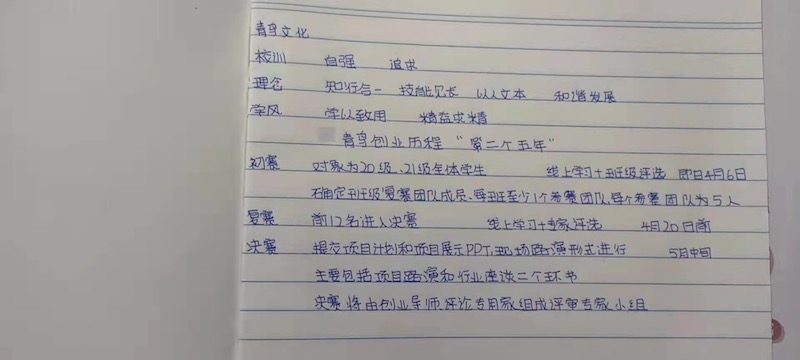 青鸟文化
校训 自强 追求
理念 知行合一 技能见长 以人文本 和谐发展
学风 学以致用 精益求精
青鸟创业历程 “第二个五年”
初赛 对象为20级、21级全体学生 线上学习+班级评选 即日4月6日
确定班级复赛团队成员、每班至少1个参赛团队,每个参赛团队为5人
复赛 前12名进入决赛 线上学习+专家评选 4月20日前
决赛 提交项目计划和项目展示PPT,现场路演形式进行 5月中旬
主要包括项目路演和行业座谈二个环节
决赛将由创业导师评论专用家组成评审专家小组